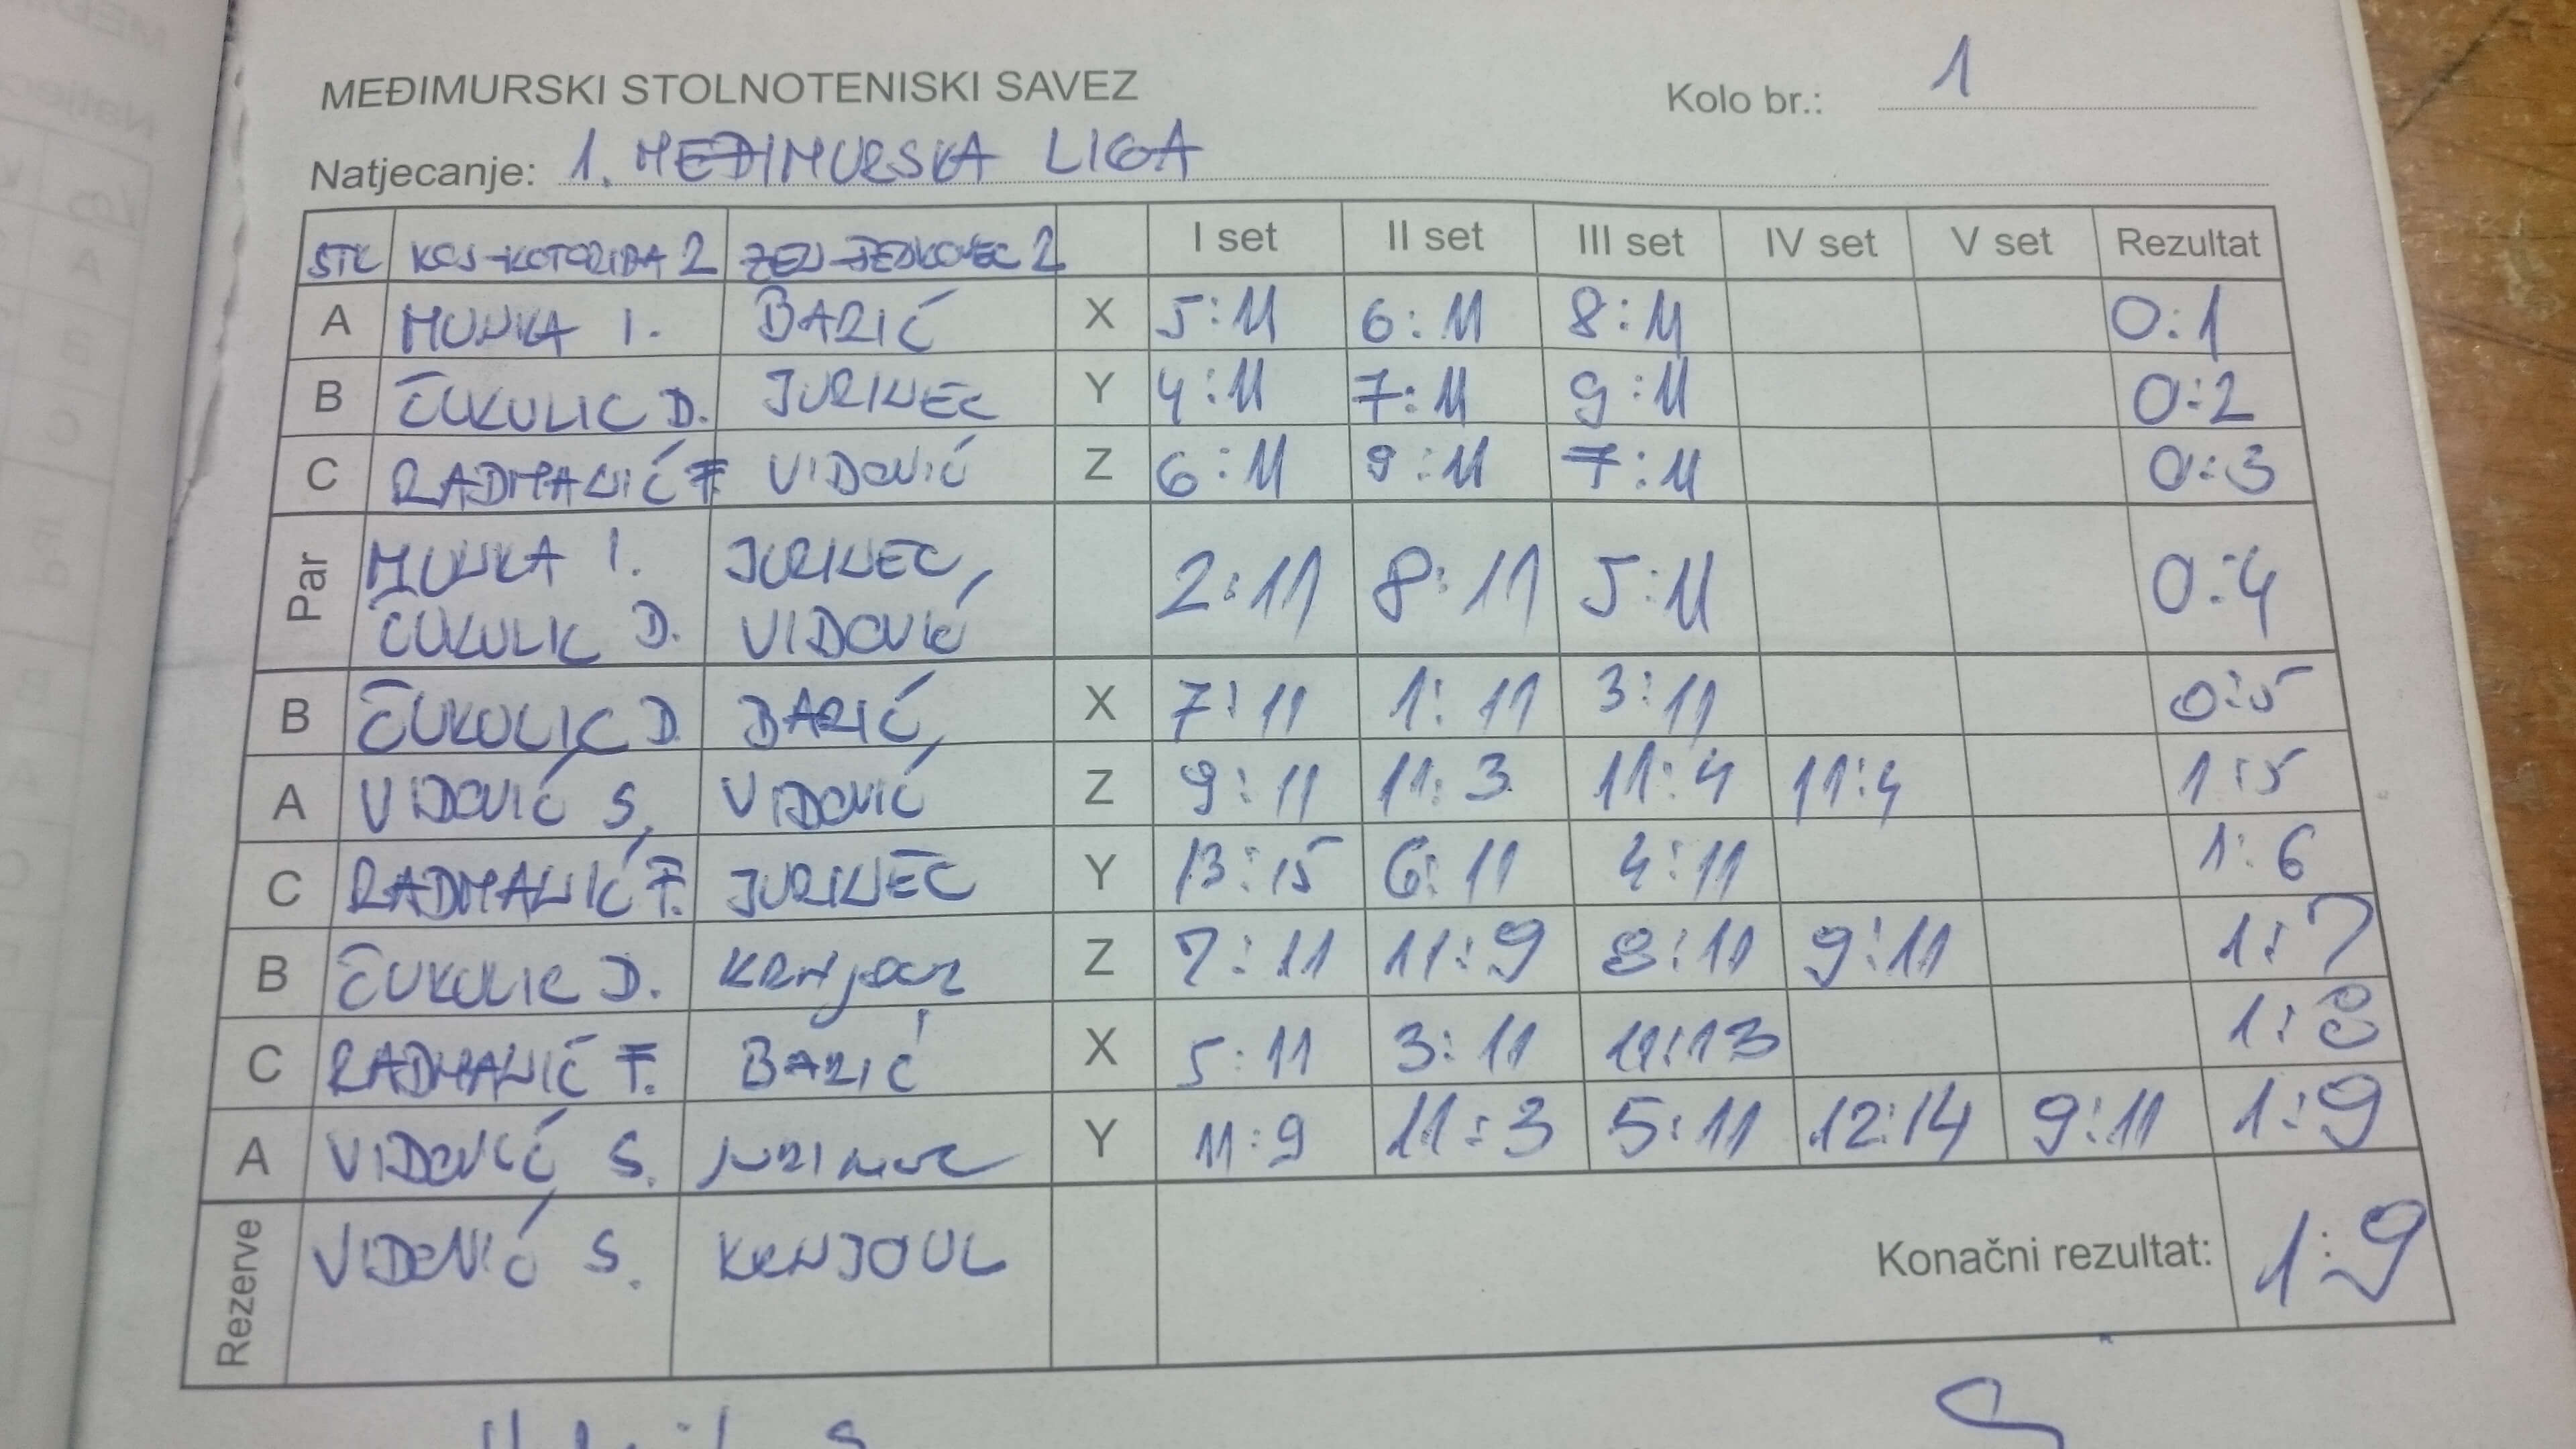 MEĐIMURSKI STOLNOTENISKI SAVEZ
Kolo br.: 1
Natjecanje: 1. MEĐIMURSKA LIGA
STK KCS-KOTORIBA 2 ZEU-JEDKOVEC 2 I set II set III set IV set V set Rezultat
A MUNKA I. BARIĆ X 5:11 6:11 8:11 0:1
B ČUKULIC D. JURINEC Y 4:11 7:11 9:11 0:2
C RADMANIĆ F. VIDOVIĆ Z 6:11 9:11 7:11 0:3
Par MUNKA I. JURINEC, 2:11 8:11 5:11 0:4
ČUKULIC D. VIDOVIĆ
B ČUKULIC D. BARIĆ X 7:11 1:11 3:11 0:5
A VIDOVIĆ S. VIDOVIĆ Z 9:11 11:3 11:4 11:4 1:5
C RADMANIĆ F. JURINEC Y 13:15 6:11 4:11 1:6
B ČUKULIC D. Z 7:11 11:9 8:11 9:11 1:7
C RADMANIĆ F. BARIĆ X 5:11 3:11 11:13 1:8
A VIDOVIĆ S. JURINEC Y 11:9 11:3 5:11 12:14 9:11 1:9
Rezerve VIDOVIĆ S. Konačni rezultat: 1:9